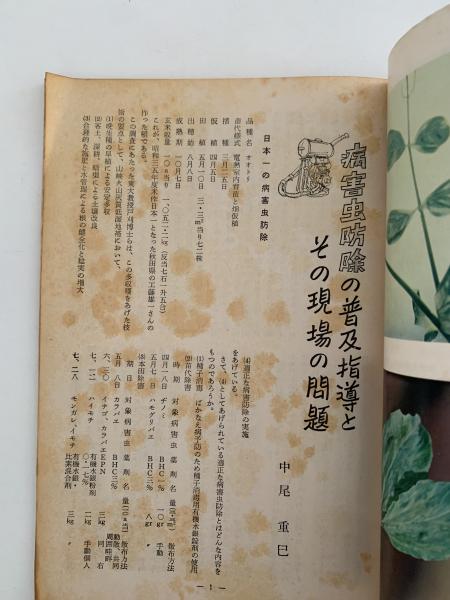 病害虫防除の普及指導と
その現場の問題
中尾重巳
日本一の病害虫防除
品種名 オオトリ
苗代様式 電熱室内育苗と畑仮植
播種 三月二五日
仮植 四月五日
田植 五月一〇日 三・三㎡当り七二株
出穂始 八月八日
成熟期 一〇月七日
玄米収量 一、〇五二・二㎏(反当七石一升五合)
(一〇a当り)
これが、昭和三五年度米作日本一となった秋田県の工藤雄一さんの
作った稲である。
この調査にあたった東大教授戸苅博士らは、この多収穫をあげた技
術の要点として、山崎火山灰質低湿地帯において、
(1)晩生種の早植による安定多収
(2)客土、深耕、暗渠による土壌改良
(3)合理的な施肥と水管理による根の健全化と稔実の増大
(4)適正な病害防除の実施
をあげている。
さて、(4)としてあげられている適正な病害虫防除とはどんな内容を
もつのであろうか。
(1)種子消毒 ばかなえ病予防のため種子消毒用有機水銀錠剤の使用
(2)苗代防除
時期 対象病害虫 薬剤名 量(三・三㎡) 散布方法
四月一八日 ヂノミ BHC一% 一〇gr 手動
五月七日 ハモグリバエ BHC三% 八gr 〃
(3)本田防除
期日 対象病害虫 薬剤名 量(一〇a当) 散布方法
五月八日 カラバエ BHC三% 三㎏
六、二〇 イナゴ、カラバエ EPN 三㎏ 同右
七、一二 ハイモチ 有機水銀粉剤 〇・一七% 二㎏ 手動個人
七、二八 モンガレ、イモチ 有機水銀・砒素混合剤 三㎏ 〃
— 1 —